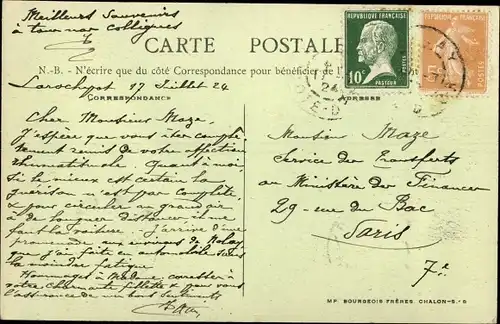 Meilleurs Souvenirs
à tous nos collègues
CARTE POSTALE
RÉPUBLIQUE FRANÇAISE
10c
PASTEUR
POSTES
RÉPUBLIQUE FRANÇAISE
5c
AY
24
N.-B. - N'écrire que du côté Correspondance pour bénéficier de l'
Larochepot 17 Juillet 24
CORRESPONDANCE
ADRESSE
Cher Monsieur Maze
J'espère que vous êtes complè
tement remis de votre affection
rhumatismale. Quant à moi,
si le mieux est certain la
guérison n'est pas complète
& pour circuler au grand air
à de longues distances, il me
faut la voiture. J'arrive d'une
promenade aux environs de Nolay
que j'ai faite en automobile sans
la moindre fatigue
Hommages à Madame, caresses à
votre charmante fillette & pour vous
l'assurance de mes bons sentiments
Monsieur Maze
Service des Transferts
au Ministère des Finances
29 rue du Bac
Paris
7e
MP. BOURGEOIS FRÈRES CHALON-S-S